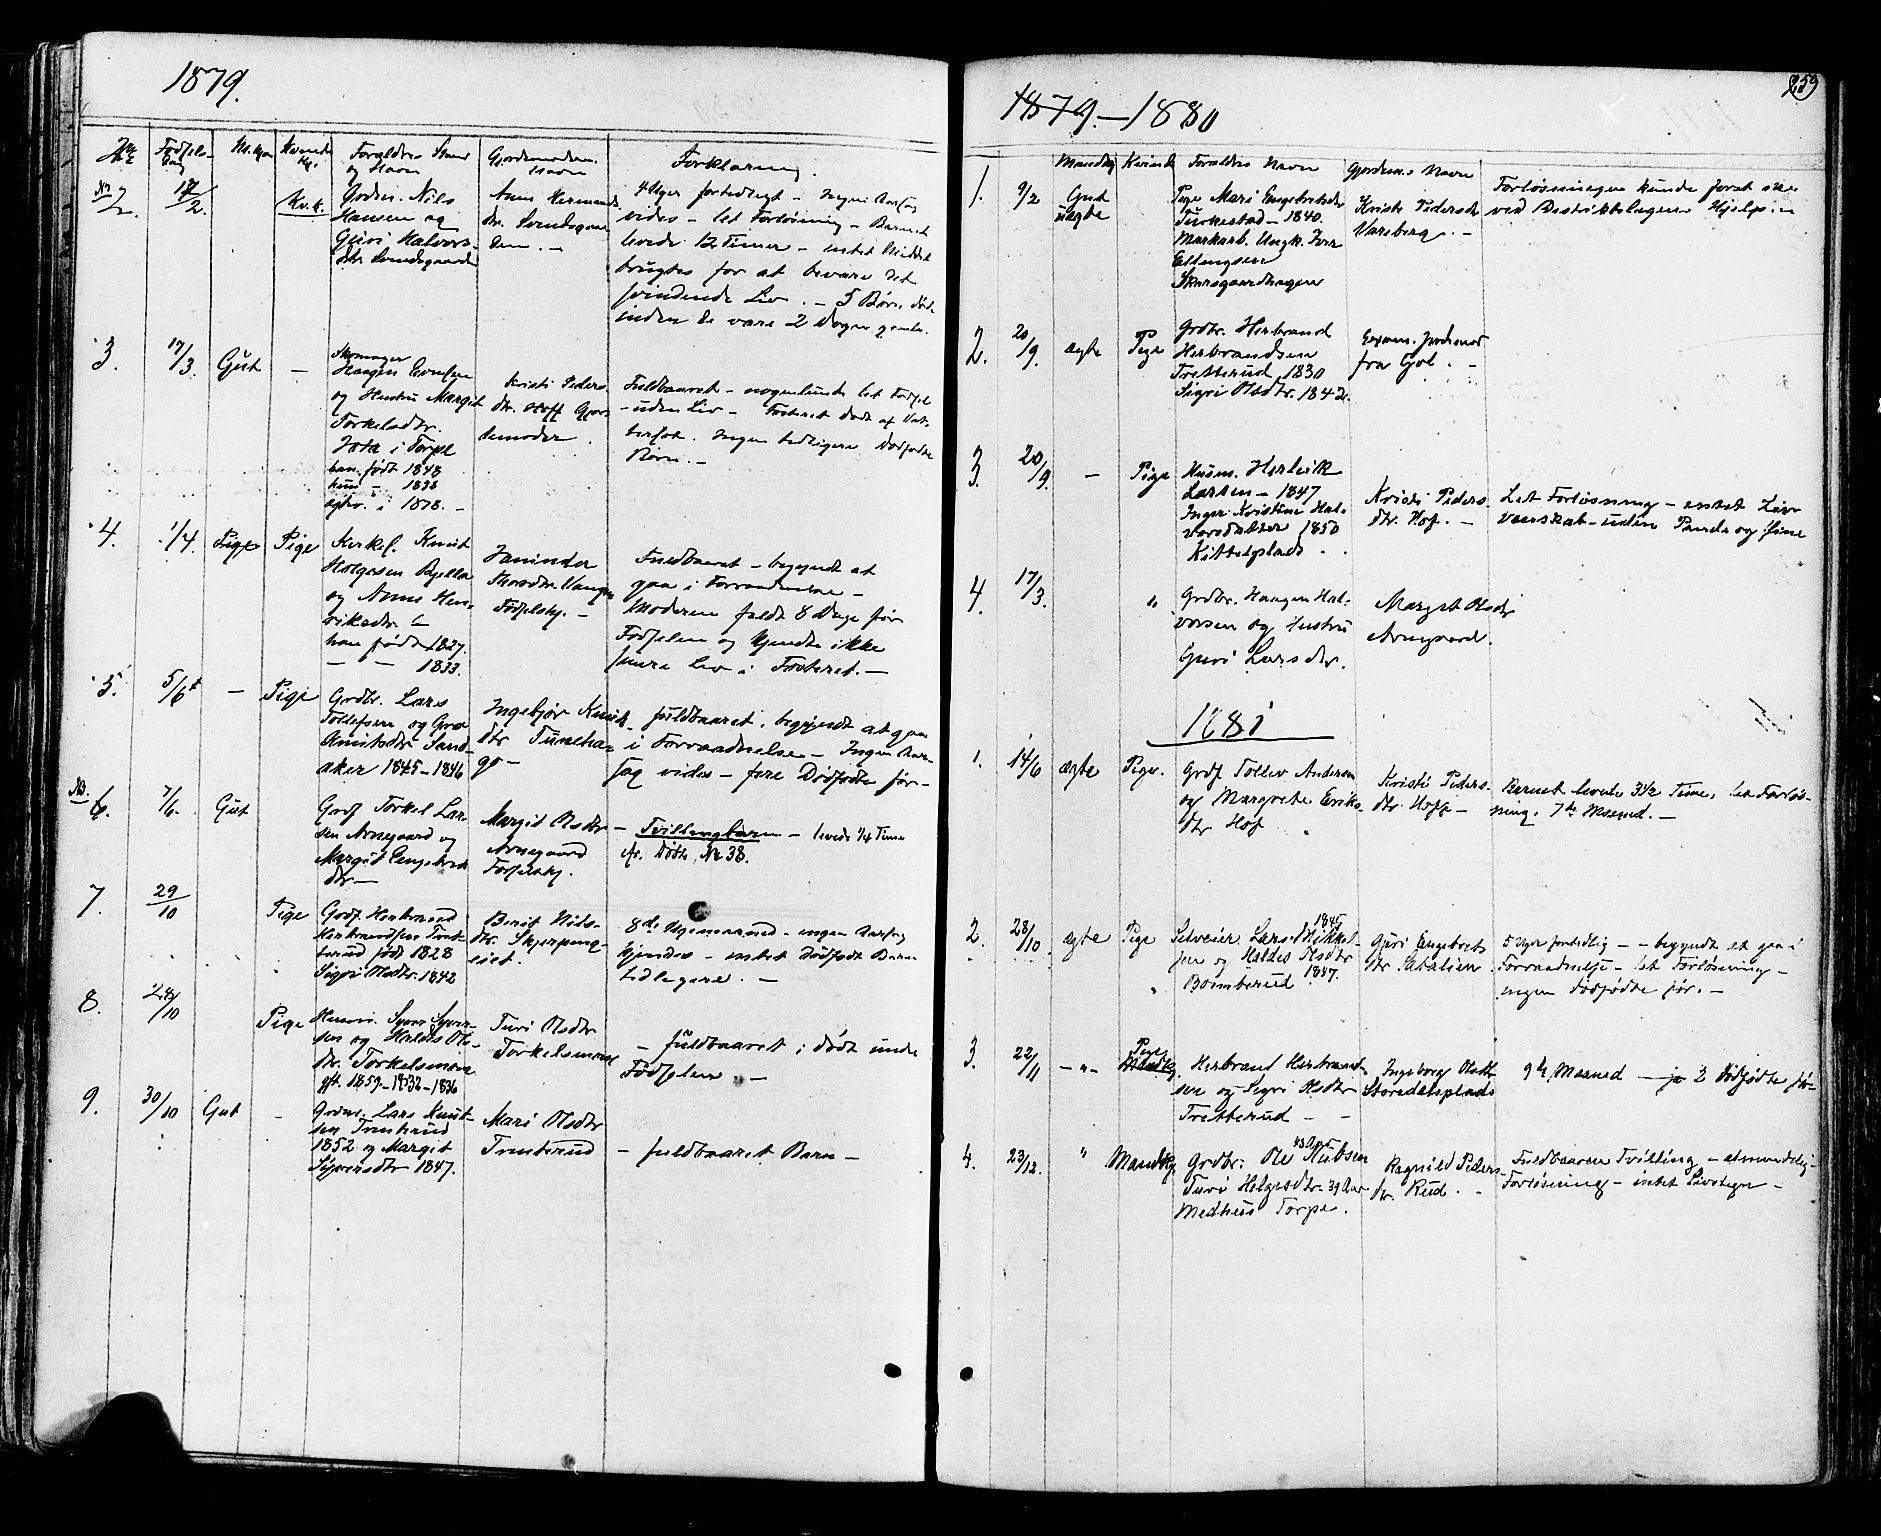 1879.
No
Fødsels-
dag
M.kjøn
Kvinde
Kj.
Forældres Stand
og Navn
Gjordemoderens
Navn
Forklaring.
2.
17/2.
Kv.k.
Nils
Hansen og
Guri Halvors-
dtr. Svendsgaard
Anne Hermands
dtr. Svendsgaar-
den. —
4 Uger fortidligt – Ingen Aarsag
vides – let Forløsning – Barnet
levede 12 Timer – intet Middel
brugtes for at bevare det
svindende Liv. – 5 Børn døde
inden de vare 2 Døgn gamle.
3.
17/3
Gut
—
Skomager
Haagen Evensen
og Hustru Margit
Torkelsdtr.
i Torpe
han født 1848
hun – 1838
egtev. i 1878. –
Kristi Peders
dtr. Hoff Gjor-
demoder.
Fuldbaaret – nogenlunde let Fødsel
– uden Liv – Fosteret dødt af Vat-
tersot. Ingen tidligere Dødfødte
Børn. —
4.
1/4.
Pige
Pige
Kirkes. Knut
Helgesen
og Anne Hen-
riksdtr.
han født 1827.
— — 1833.
Thorsdtr.
Fødselshj. —
Fuldbaaret – begyndt at
gaa i Forraadnelse –
Moderen faldt 8 Dage før
Fødselen og kjendte ikke
senere Liv i Fosteret. —
5.
5/6
—
Pige
Grdbr. Lars
Tollefsen og Gro
Amutsdtr Sand-
aker 1845 – 1846
Ingebjør Knuts-
dtr Tuneha-
ge —
fuldbaaret, begyndt at gaa
i Forraadnelse – Ingen Aar-
sag vides – fere Dødfødte før –
6.
7/6.
Gut
Grdf Torkel Lar-
sen Arnegaard og
Margit Engebrets
dtr. —
Margit Olsdtr
Arnegaard
Fødselshj.
– Tvillingbarn – levede 1/4 Time
Cfr. Døbte, No 38.
7.
29/10
Pige
Grdf. Herbrand
Herbrandsen Tret-
terud født 1828
Sigri Olsdtr. 1842
Berit Nils-
dtr. Skjerping-
eiet.
8de Ugemaaned – ingen Aarsag
kjendes – intet Dødfødt Barn
tidligere. —
8.
24/10
Pige
Husm. Syver Syver-
sen og Haldis Ols-
dtr. Torkelsmoen
gft. 1859 – 1832 – 1836
Turi Olsdtr
Torkelsmoen
– fuldbaaret; dødt under
Fødselen. —
9.
30/10
Gut
–
Lars Knut-
sen Trinterud
1852 og Margit
Syversdtr 1847.
Mari Olsdtr
Trinterud
– fuldbaaret Barn –
259
1879. – 1880
Mandkj
Kvindk
Forældres Navn
Gjordem.s Navn
1.
9/2
Gut
uægte
Pige Mari Engebretsdtr
Turkestad – 1840.
Markarb. Ungk. Iver
Ellingsen
Skarsgaardhagen
Kristi Pedersdtr
Vareberg. –
Forløsningen kunde først ske
ved Distriktslægens Hjelp. —
2.
20/9.
ægte
Pige
Grdbr. Herbrand
Herbrandsen
Tretterud, 1830
Sigri Olsdtr. 1842.
Exam. Jordmor
fra Gol. –
3.
20/9.
—
Pige
Husm. Herleik
Larsen – 1847
Inger Kristine Hal-
vorsdatter 1850
Kittelplads.
Kristi Peders-
dtr. Hof. –
Let Forløsning – uden Pande og Hine
4.
17/3.
"
Grdbr. Haagen Hal-
vorsen og Hustru
Guri Larsdtr.
Margit Olsdtr
Arnegaard.
1881
1.
14/6
ægte
Pige.
Grdf Tollev Andersen
og Margrete Eriks-
dtr Hof
Kristi Peders-
dtr. Hoff –
Barnet levede 3 1/2 Time, let Forløs-
ning. 7de Maaned. —
2.
28/10.
ægte
Pige
1845
Selveier Lars Mikkel-
sen og Haldis Olsdtr
1847.
Bomberud
Guri Engebrets
dtr
5 Uger fortidlig – – begyndt at gaa i
Forraadnelse – let Forløsning –
ingen dødfødte før. –
3.
22/11
– " –
Pige
Mandkj.
Herbrand Herbrand-
sen og Sigri Olsdtr
Tretterud – –
Ingeborg Olsdtr
Storedalsplads
9 1/2 Maaned — 2 dødfødte før –
4.
23/12.
"
Mandkj.
43 Aar
Grdbr. Ole Nubsen
Turi Helgesdtr – 39 Aar
Medhus Torpe.
Ragnild Peders-
dtr. Rud. –
Fuldbaaren Tvilling – almindelig
Forløsning – intet Livstegn –